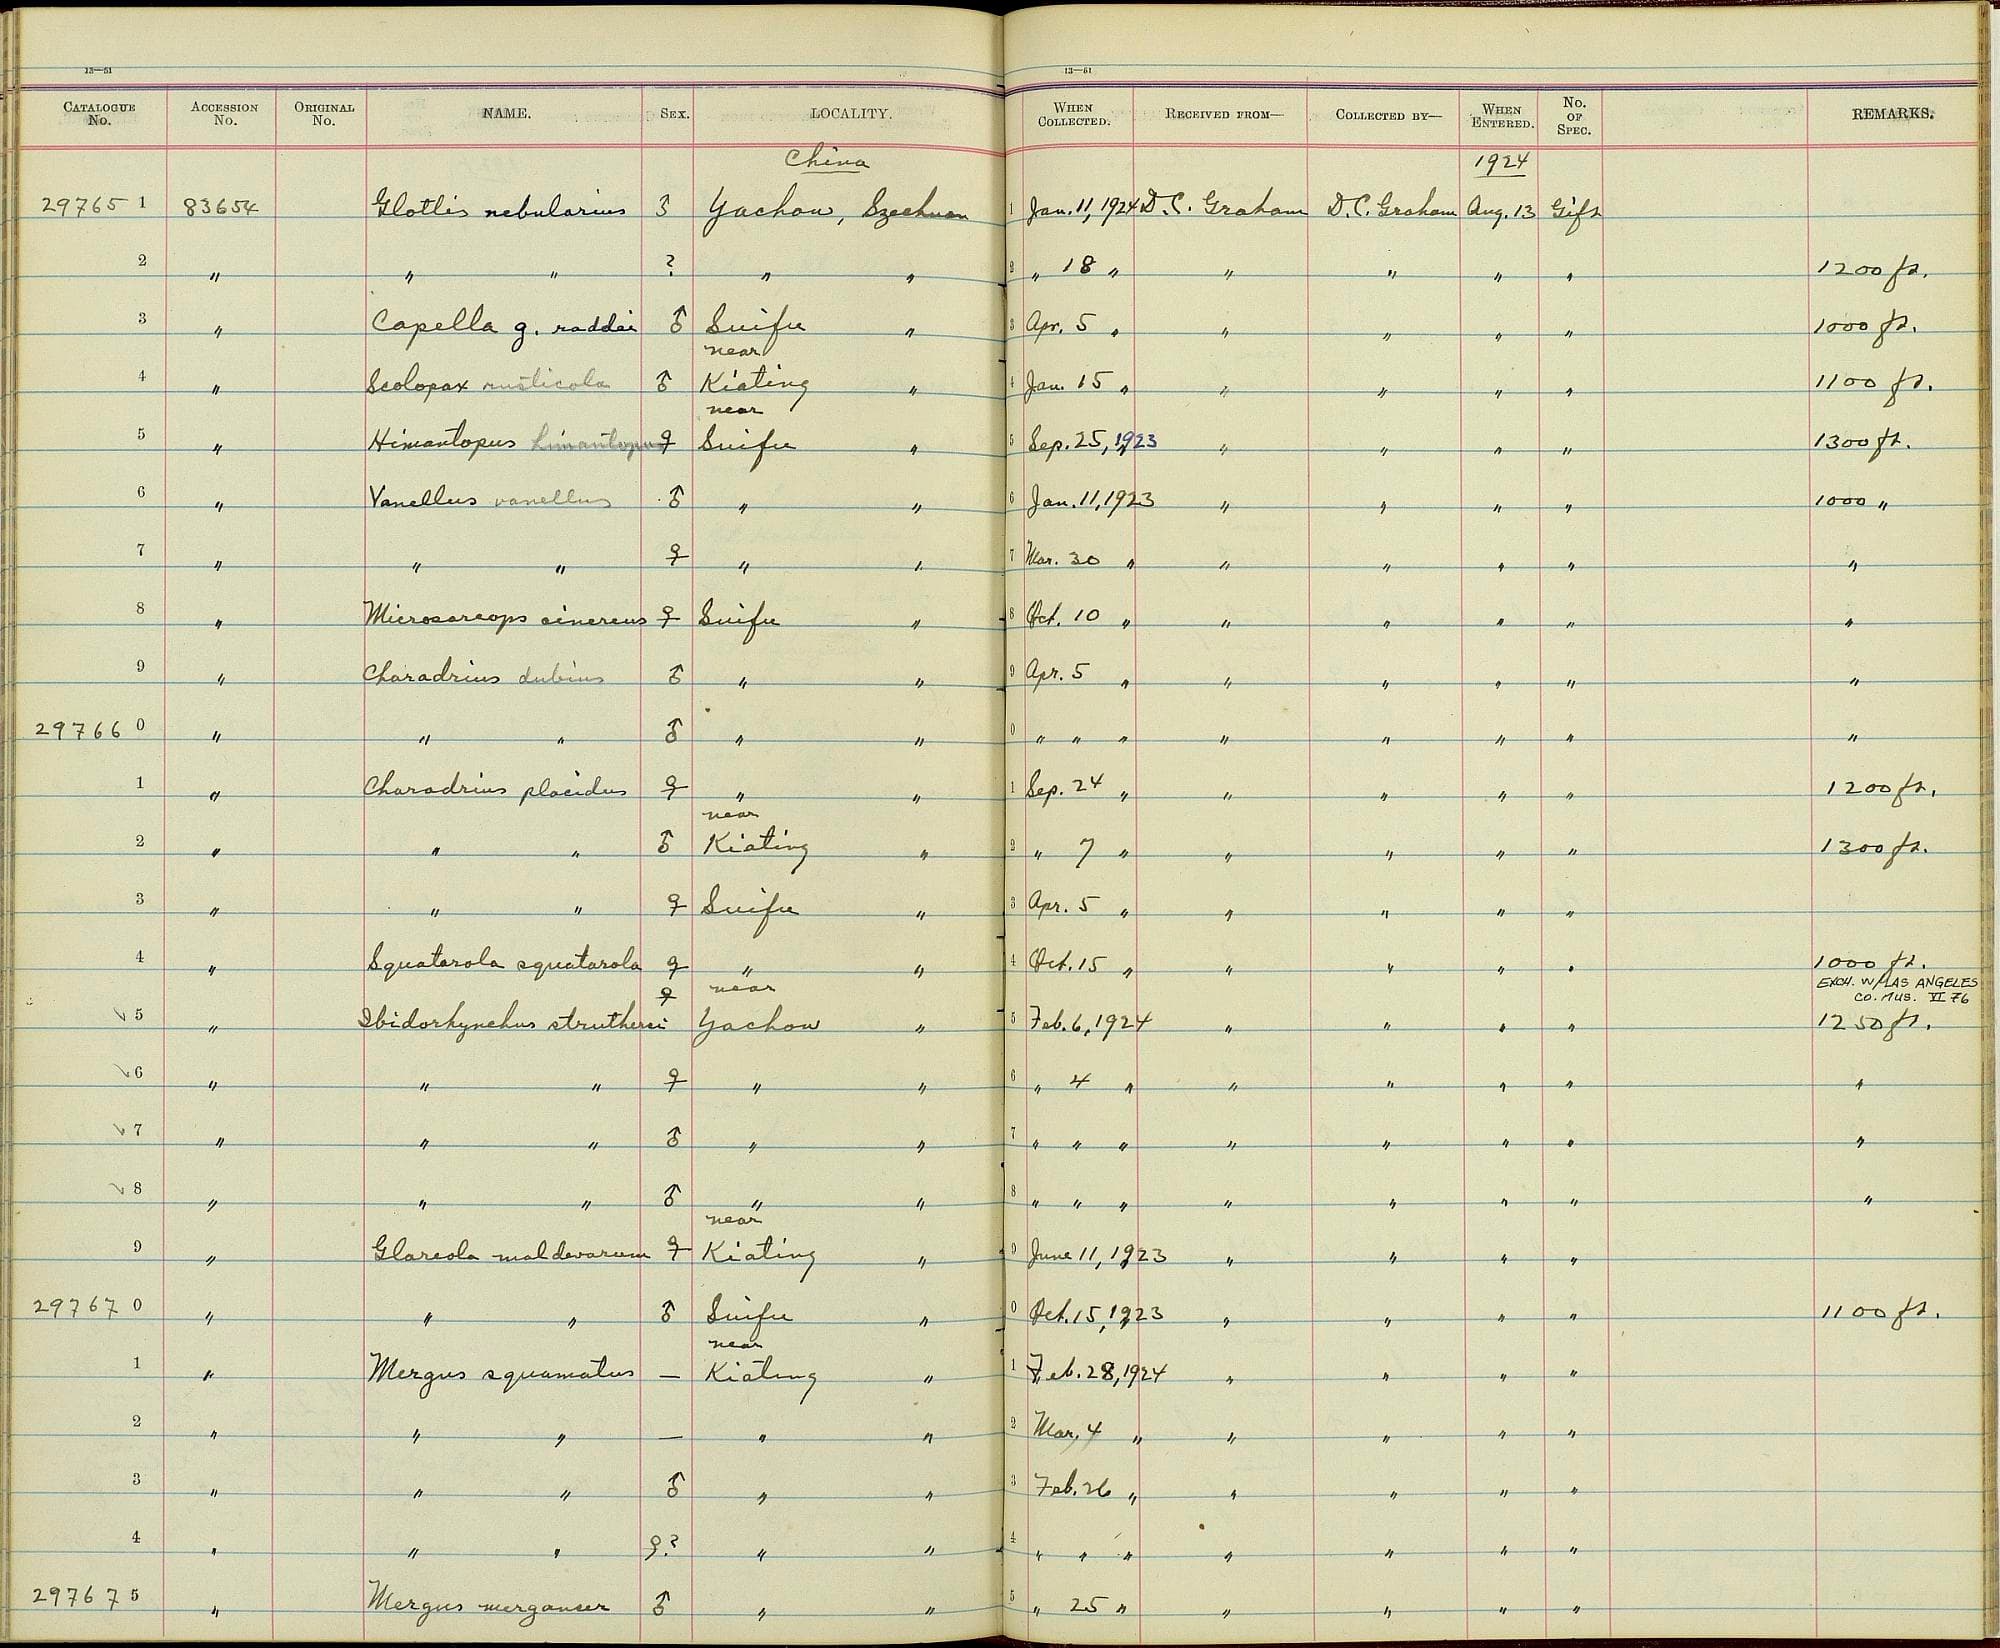 13—51 13—51
CATALOGUE No. ACCESSION No. ORIGINAL No. NAME. SEX. LOCALITY. WHEN COLLECTED. RECEIVED FROM— COLLECTED BY— WHEN ENTERED. No. OF SPEC. REMARKS.
China 1924
29765 1 83654 Glottis nebularius ♂ Yachow, Szechuan 1 Jan. 11, 1924 D. C. Graham D. C. Graham Aug. 13 Gift
2 " " " ? " " 2 " 18 " " " " " 1200 ft.
3 " Capella g. raddei ♂ Suifu " 3 Apr. 5 " " " " " 1000 ft.
near
4 " Scolopax rusticola ♂ Kiating " 4 Jan. 15 " " " " " 1100 ft.
near
5 " Himantopus himantopus ♀ Suifu " 5 Sep. 25, 1923 " " " " 1300 ft.
6 " Vanellus vanellus ♂ " " 6 Jan. 11, 1923 " " " " 1000 "
7 " " " ♀ " " 7 Mar. 30 " " " " " "
8 " Microsarcops cinereus ♀ Suifu " 8 Oct. 10 " " " " " "
9 " Charadrius dubius ♂ " " 9 Apr. 5 " " " " " "
29766 0 " " " ♂ " " 0 " " " " " " " "
1 " Charadrius placidus ♀ " " 1 Sep. 24 " " " " " 1200 ft.
near
2 " " " ♂ Kiating " 2 " 7 " " " " " 1300 ft.
3 " " " ♀ Suifu " 3 Apr. 5 " " " " "
4 " Squatarola squatarola ♀ " " 4 Oct. 15 " " " " " 1000 ft.
♀ near EXCH. W/LAS ANGELES
CO. MUS. VI 76
5 " Ibidorhynchus struthersi Yachow " 5 Feb. 6, 1924 " " " " 1250 ft.
6 " " " ♀ " " 6 " 4 " " " " " "
7 " " " ♂ " " 7 " " " " " " " "
8 " " " ♂ " " 8 " " " " " " " "
near
9 " Glareola maldevarum ♀ Kiating " 9 June 11, 1923 " " " "
29767 0 " " " ♂ Suifu " 0 Oct. 15, 1923 " " " " 1100 ft.
near
1 " Mergus squamatus — Kiating " 1 Feb. 28, 1924 " " " "
2 " " " — " " 2 Mar. 4 " " " " "
3 " " " ♂ " " 3 Feb. 26 " " " " "
4 " " " ♀? " " 4 " " " " " " "
29767 5 " Mergus merganser ♂ " " 5 " 25 " " " " "